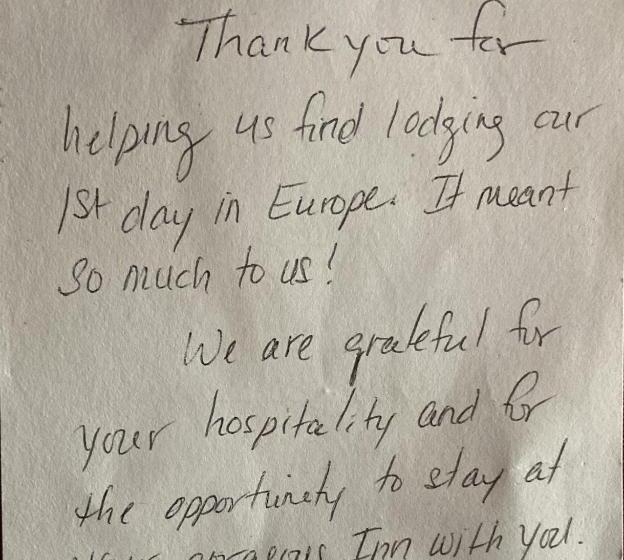 Thank you for
helping us find lodging our
1st day in Europe. It meant
so much to us!
We are grateful for
your hospitality and for
the opportunity to stay at
your gorgeous Inn with you.